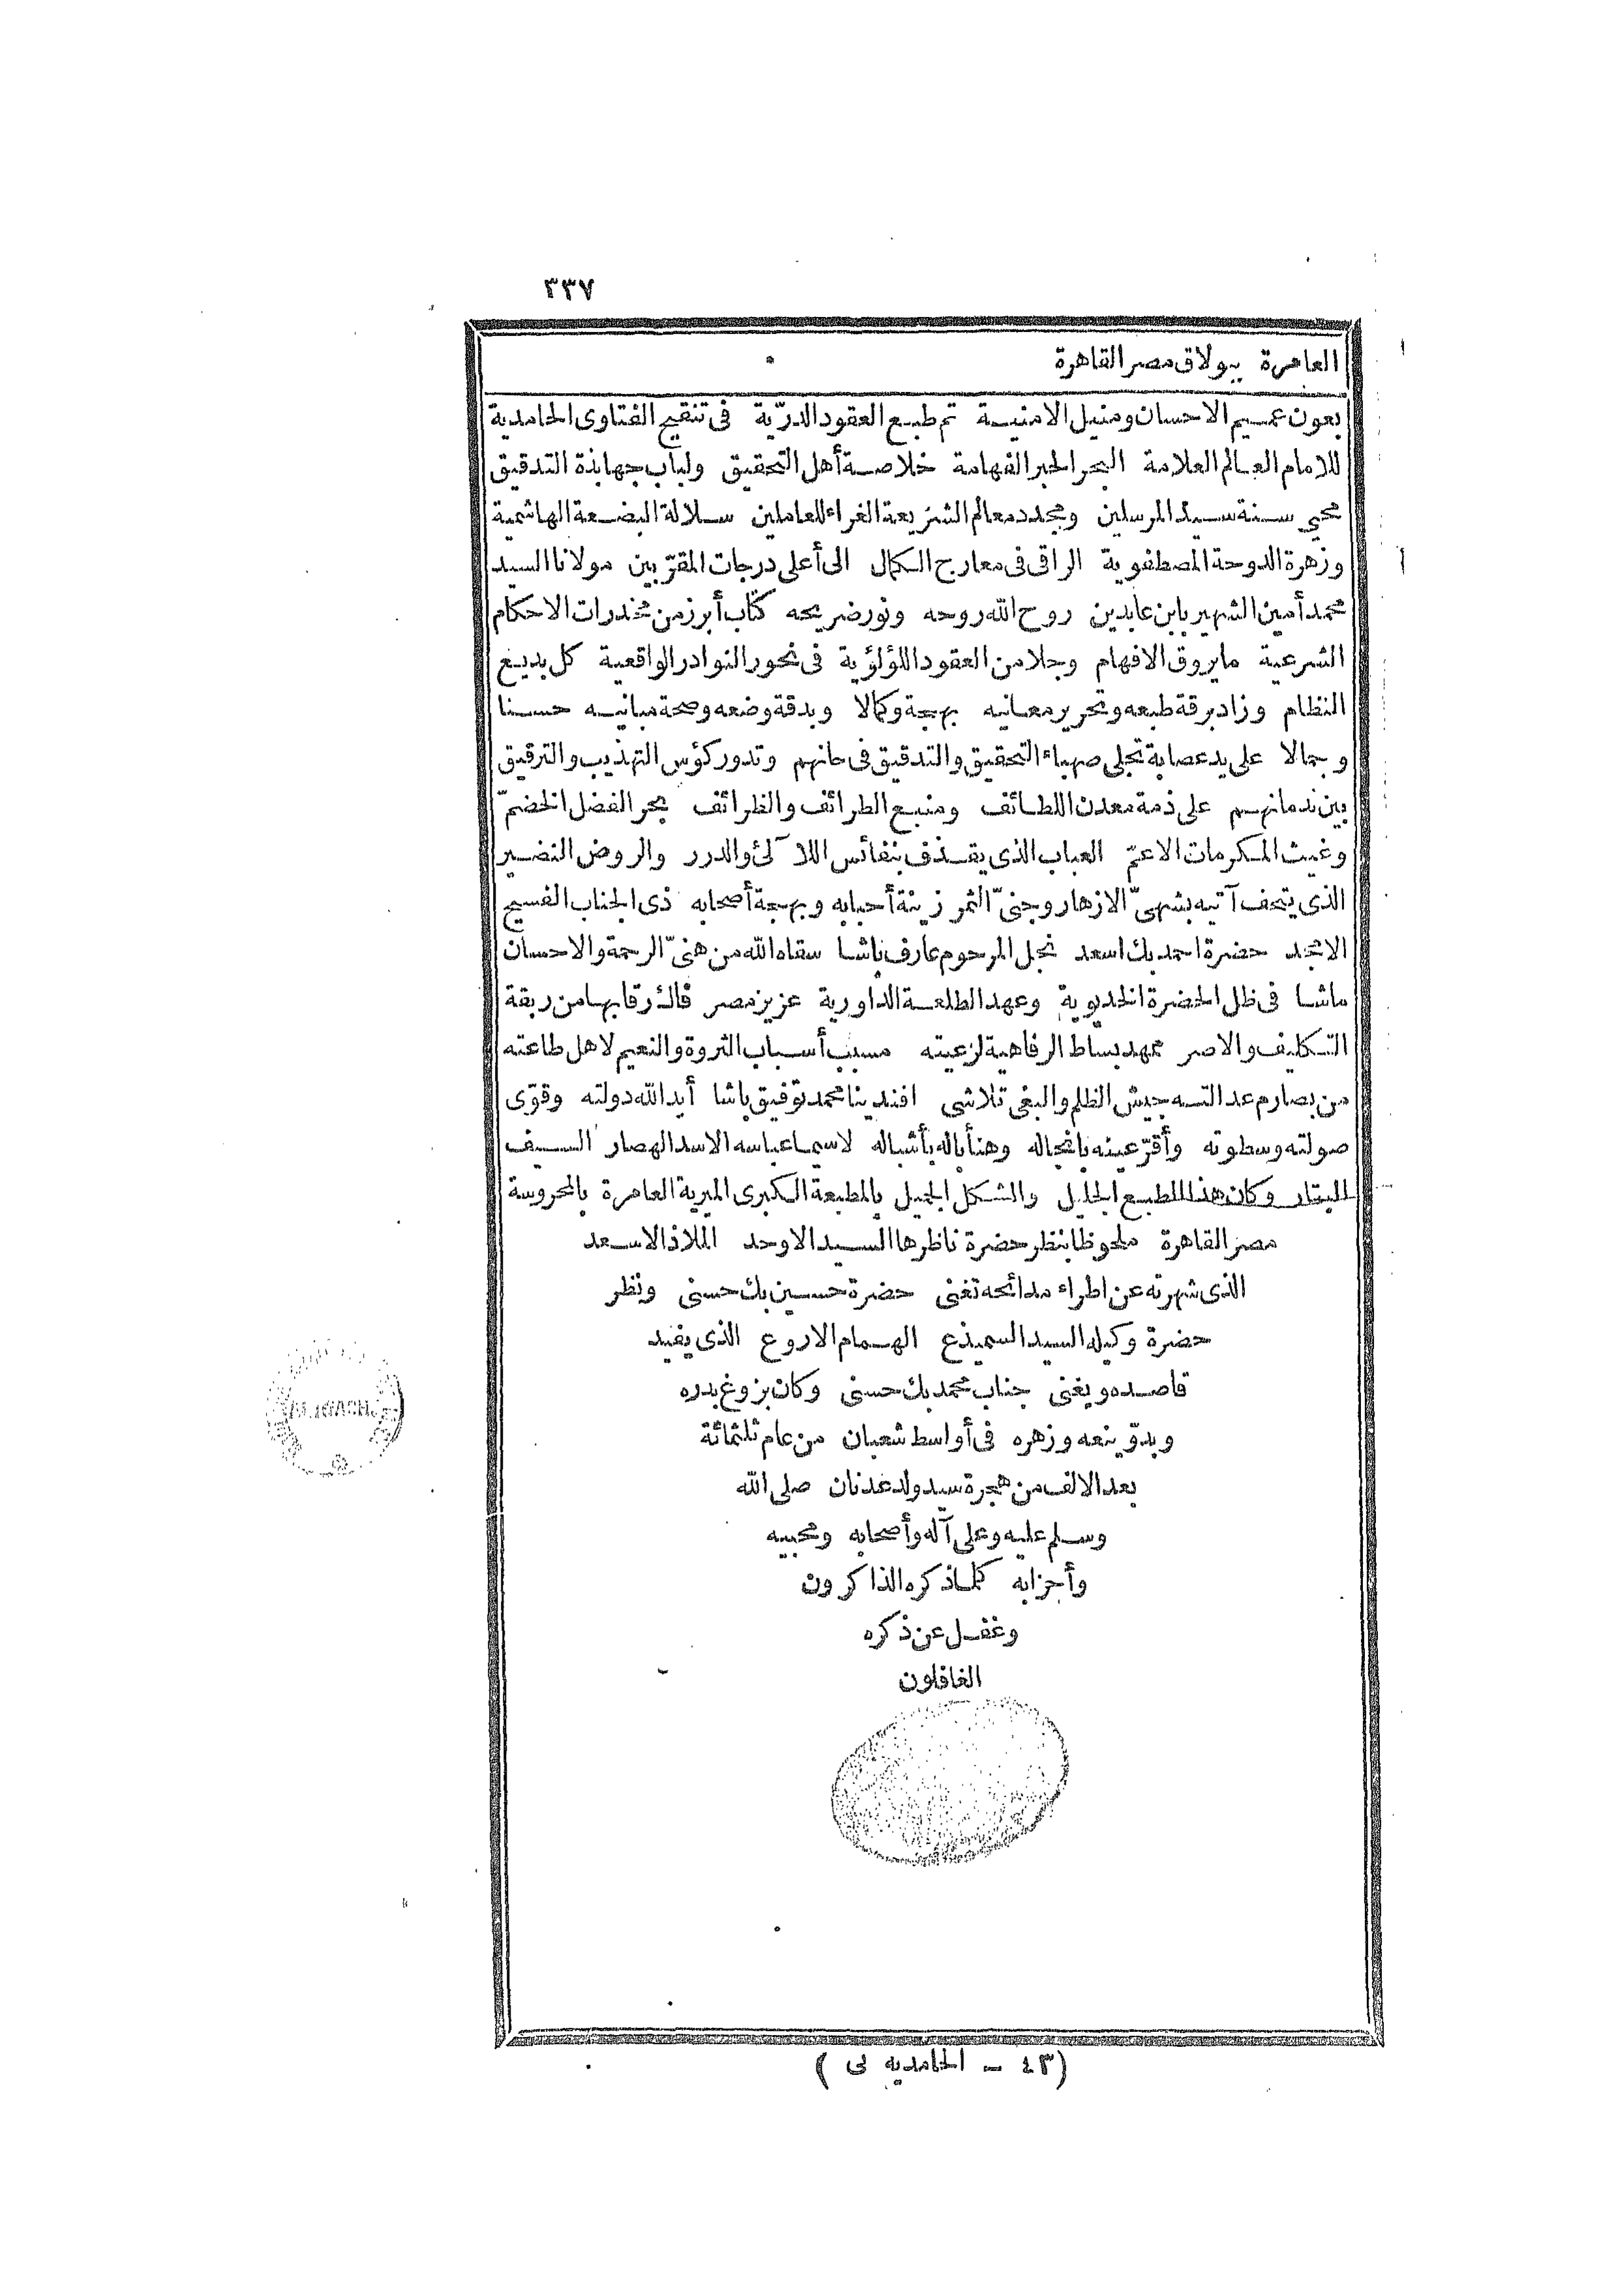 ٣٣٧
العامرة ببولاق مصر القاهرة
بعون عميم الاحسان ومنيل الامنية تم طبع العقود الدرّية فى تنقيح الفتاوى الحامدية
للامام العالم العلامة البحر الحبر الفهامة خلاصة أهل التحقيق ولباب جهابذة التدقيق
محيي سنة سيد المرسلين ومجدد معالم الشريعة الغراء للعاملين سلالة البضعة الهاشمية
وزهرة الدوحة المصطفوية الراقى فى معارج الكمال الى أعلى درجات المقرّبين مولانا السيد
محمد أمين الشهير بابن عابدين روح الله روحه ونور ضريحه كتاب أبرز من مخدرات الاحكام
الشرعية ما يروق الافهام وجلا من العقود اللؤلؤية فى نحور النوادر الواقعية كل بديع
النظام وزاد برقة طبعه وتحرير معانيه بهجة وكمالا وبدقة وضعه وصحة مبانيه حسنا
وجمالا على يد عصابة تجلى صهباء التحقيق والتدقيق فى حانهم وتدور كؤس التهذيب والترقيق
بين ندمانهم على ذمة معدن اللطائف ومنبع الطرائف والظرائف بحر الفضل الخضمّ
وغيث المكرمات الاعمّ العباب الذى يقذف بنفائس اللآلئ والدرر والروض النضير
الذى يتحف آتيه بشهىّ الازهار وجنىّ الثمر زينة أحبابه وبهجة أصحابه ذى الجناب الفسيح
الامجد حضرة احمد بك اسعد نجل المرحوم عارف باشا سقاه الله من هنىّ الرحمة والاحسان
ماشا فى ظل الحضرة الخديوية وعهد الطلعة الداورية عزيز مصر فاك رقابها من ربقة
التكليف والاصر ممهد بساط الرفاهية لرعيته مسبب أسباب الثروة والنعيم لاهل طاعته
من بصارم عدالته جيش الظلم والبغى تلاشى افندينا محمد توفيق باشا أيد الله دولته وقوّى
صولته وسطوته وأقرّ عينه بانجاله وهنأ باله بأشباله لاسيما عباسه الاسد الهصار السيف
البتار وكان هذا الطبع الجليل والشكل الجميل بالمطبعة الكبرى الميرية العامرة بالمحروسة
مصر القاهرة ملحوظا بنظر حضرة ناظرها السيد الاوحد الملاذ الاسعد
الذى شهرته عن اطراء مدائحه تغنى حضرة حسين بك حسنى ونظر
حضرة وكيله السيد السميذع الهمام الاروع الذى يفيد
قاصده ويغنى جناب محمد بك حسنى وكان بزوغ بدره
وبدوّ ينعه وزهره فى أواسط شعبان من عام ثلثمائة
بعد الالف من هجرة سيد ولد عدنان صلى الله
وسلم عليه وعلى آله وأصحابه ومحبيه
وأحزابه كلما ذكره الذاكرون
وغفل عن ذكره
الغافلون
(٤٣ - الحامديه نى)